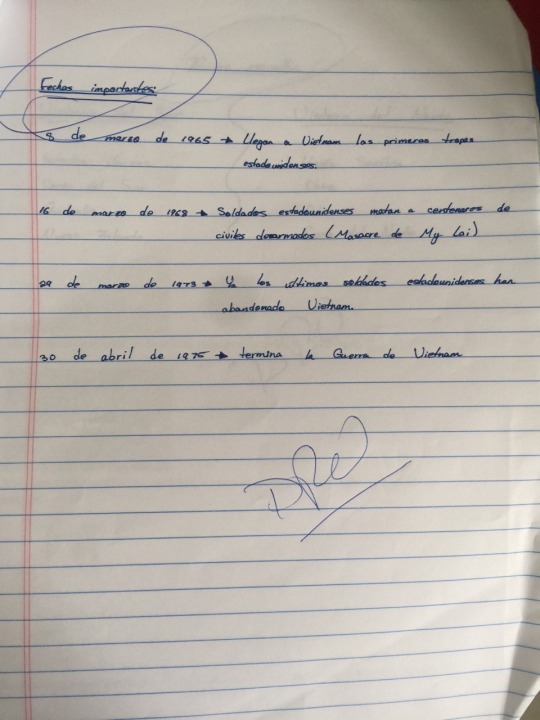 Fechas importantes:
8 de marzo de 1965 → Llegan a Vietnam las primeras tropas
estadounidenses.
16 de marzo de 1968 → Soldados estadounidenses matan a centenares de
civiles desarmados (Masacre de My Lai)
29 de marzo de 1973 → Ya los ultimos soldados estadounidenses han
abandonado Vietnam.
30 de abril de 1975 → termina la Guerra de Vietnam